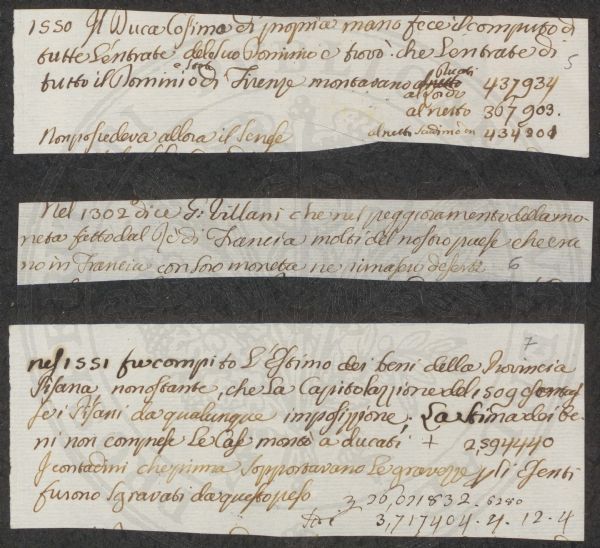 1550 Il Duca Cosimo di propria mano fece il computo di
tutte l'entrate del suo Dominio e trovò che l'entrate di 5
tutto il Dominio di Firenze montavano Ducati
al lordo 437934
al netto 367903.
Non possedeva allora il Senese al netto 434301
Nel 1302 dice G: Villani che nel peggioramento della mo-
neta fatto dal Rè di Francia molti del nostro paese che era
no in Francia con loro moneta ne rimasero deserti 6
7
nel 1551 fu compito l'Estimo dei beni della Provincia
Pisana nonostante, che la Capitolazzione del 1509
se i Pisani da qualunque imposizzione; La stima dei Be-
ni non comprese le Case montò a ducati + 2,594440
I contadini che prima sopportavano le gravezze p gli Esenti
furono sgravati da questo peso 26,021832. 6280
3,717404. 4. 12. 4